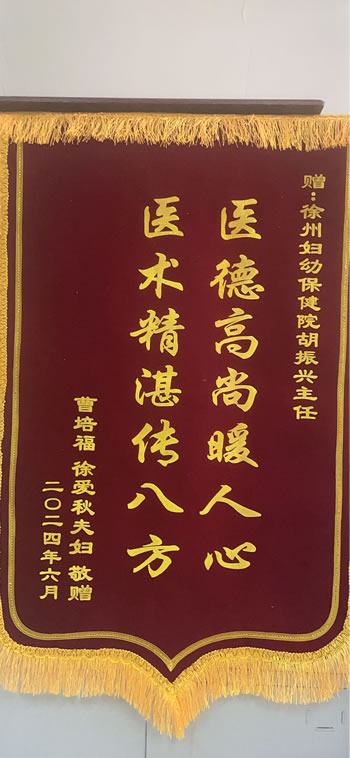 赠：徐州妇幼保健院胡振兴主任
医德高尚暖人心
医术精湛传八方
曹培福 徐爱秋夫妇 敬赠
二〇二四年六月